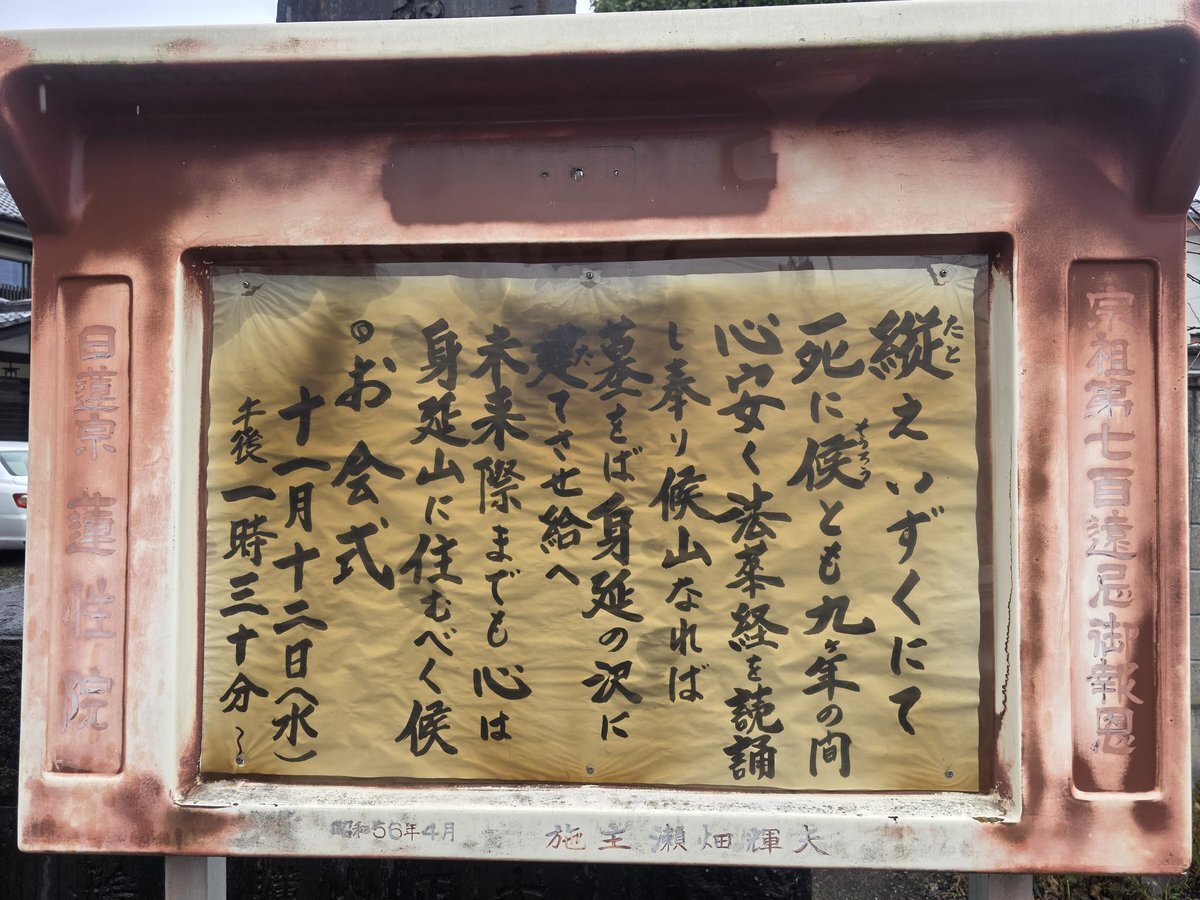 宗祖第七百遠忌御報恩
縦え いずくにて
たと
死に候とも九ヶ年の間
そうろう
心安く法華経を読誦
し奉り候山なれば
墓をば身延の沢に
建てさせ給へ
た
未来際までも心は
身延山に住むべく候
◎お会式
十一月十二日(水)
午後一時三十分〜
日蓮宗 蓮住院
昭和56年4月
施主 瀬畑輝夫